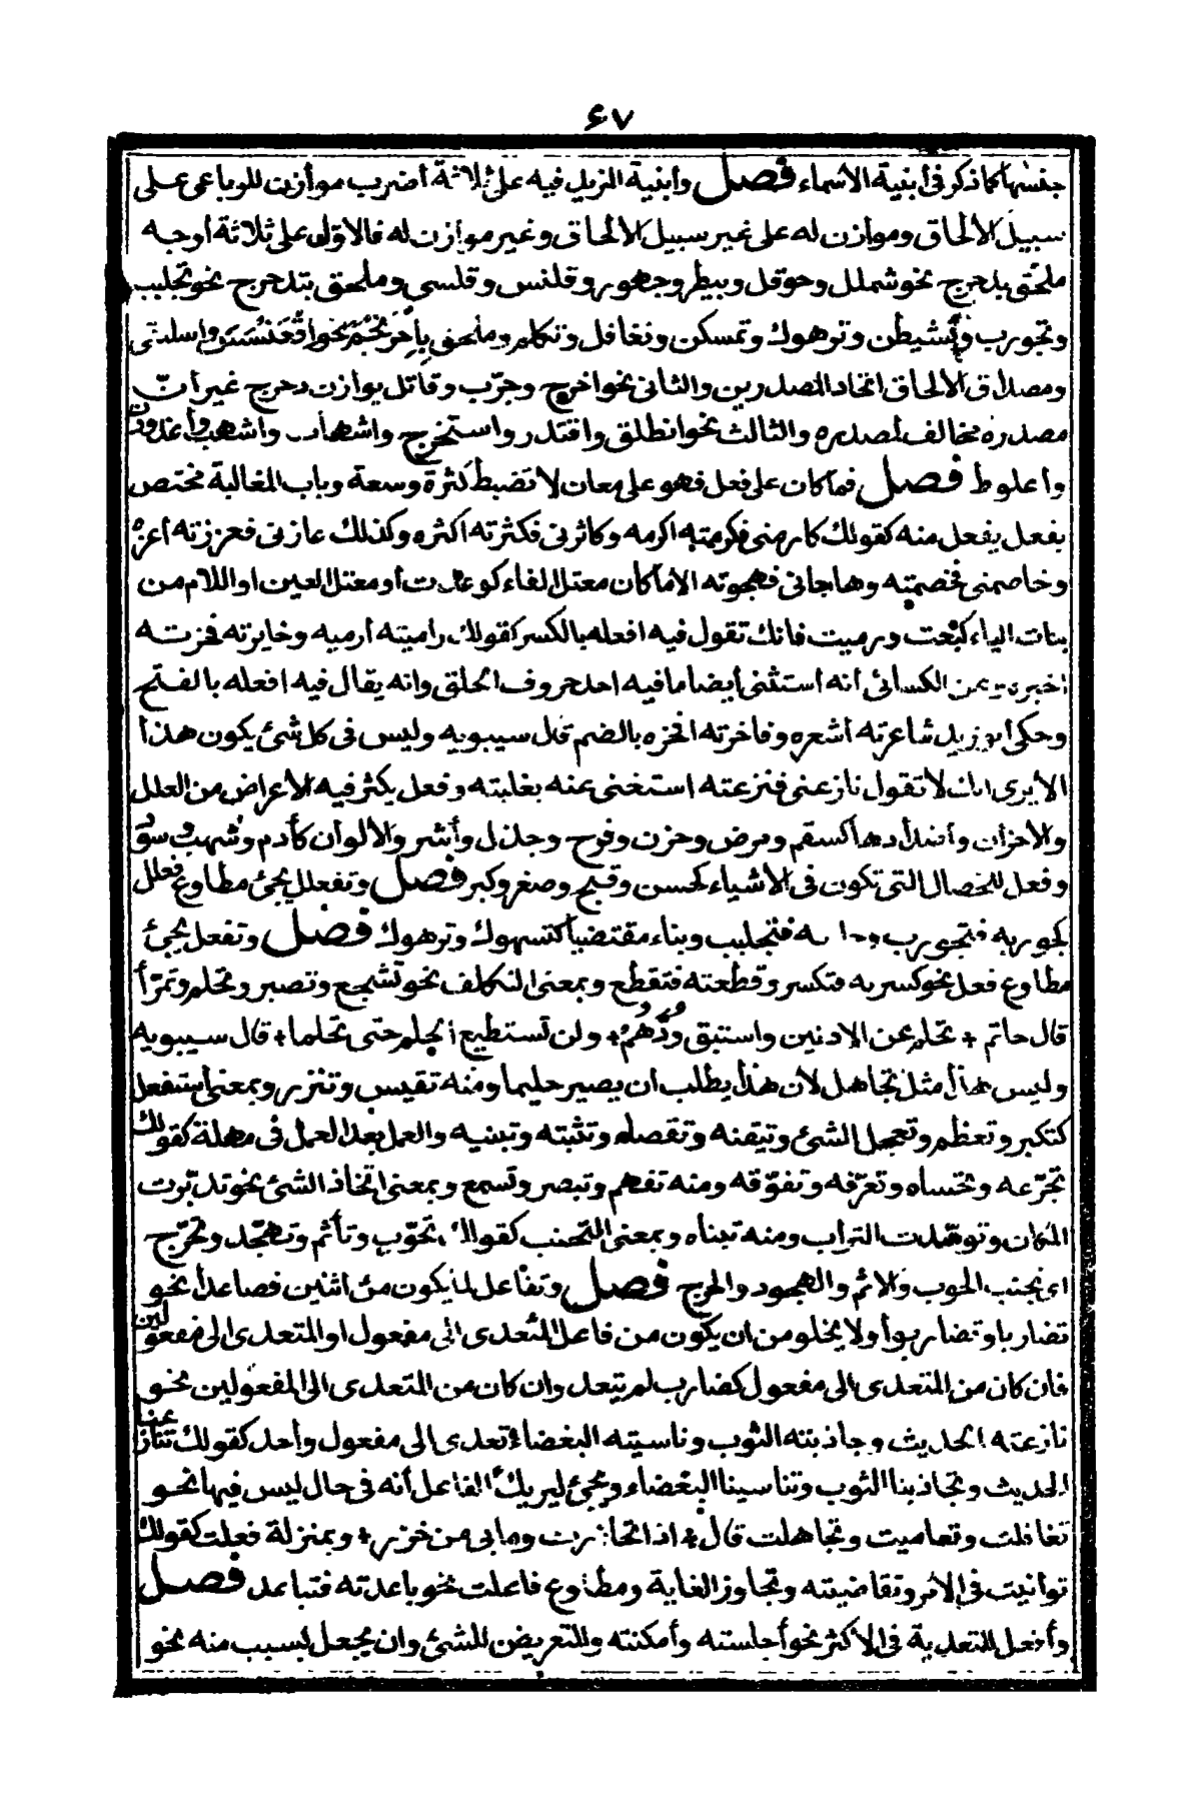 ٤٧
جنسها كما ذكر في أبنية الأسماء فصل وأبنية المزيد فيه على ثلاثة أضرب موازن للرباعي على
سبيل الالحاق وموازن له على غير سبيل الالحاق وغير موازن له فالاول على ثلاثة أوجه
ملحق بدحرج نحو شملل وحوقل وبيطر وجهور وقلنس وقلسى وملحق بتدحرج نحو تجلبب
وتجورب وتشيطن وترهوك وتمسكن وتغافل وتكلم وملحق باحرنجم نحو اقعنسس واسلنقى
ومصداق الالحاق اتحاد المصدرين والثاني نحو اخرج وجرّب وقاتل يوازن دحرج غير أنّ
مصدره مخالف لمصدره والثالث نحو انطلق واقتدر واستخرج واشهابّ واشهبّ واغدودن
واعلوط فصل فما كان على فعل فهو على معان لا تضبط كثرة وسعة وباب المغالبة مختص
بفعل يفعل منه كقولك كارمني فكرمته اكرمه وكاثرني فكثرته اكثره وكذلك عازني فعززته أعزّه
وخاصمني فخصمته وهاجاني فهجوته الا ما كان معتل الفاء كوعدت أو معتل العين او اللام من
بنات الياء كبعت ورميت فانك تقول فيه افعله بالكسر كقولك راميته أرميه وخايرته فخرته
اخيره وعن الكسائي انه استثنى أيضا ما فيه احد حروف الحلق وانه يقال فيه افعله بالفتح
وحكى أبو زيد شاعرته اشعره وفاخرته افخره بالضم قال سيبويه وليس في كل شئ يكون هذا
الا يرى انك لا تقول نازعني فنزعته استغنى عنه بغلبته وفعل يكثر فيه الأعراض من العلل
والأحزان وأضدادها كسقم ومرض وحزن وفرح وجذل وأشر والألوان كأدم وشهب وسود
وفعل للخصال التي تكون في الأشياء كحسن وقبح وصغر وكبر فصل وتفعلل يجئ مطاوع فعلل
كجوربه فتجورب وجلببه فتجلبب وبناء مقتضبا كتسهوك وترهوك فصل وتفعل يجئ
مطاوع فعل نحو كسر به فتكسر وقطعته فتقطع وبمعنى التكلف نحو تشجع وتصبر وتحلم وتمرّأ
قال حاتم + تحلم عن الادنين واستبق وُدَّهُمُ + ولن تستطيع الحلم حتى تحلما + قال سيبويه
وليس هذا مثل تجاهل لأن هذا يطلب ان يصير حليما ومنه تقيس وتنزر وبمعنى استفعل
كتكبر وتعظم وتعجل الشئ وتيقنه وتقصاه وتثبته وتبينه والعمل بعد العمل في مهلة كقولك
تجرّعه وتحساه وتعرّفه وتفوّقه ومنه تفهم وتبصر وتسمع وبمعنى اتخاذ الشئ نحو تديّرت
المكان وتوسّدت التراب ومنه تبناه وبمعنى التجنب كقولك تحوّب وتأثم وتهجّد وتحرّج
اى تجنب الحوب والاثم والهجود والحرج فصل وتفاعل لما يكون من اثنين فصاعدا نحو
تضاربا وتضاربوا ولا يخلو من ان يكون من فاعل المتعدى الى مفعول او المتعدى الى مفعولين
فان كان من المتعدى الى مفعول كضارب لم يتعد وان كان من المتعدى الى المفعولين نحو
نازعته الحديث وجاذبته الثوب وناسيته البغضاء تعدى الى مفعول واحد كقولك تنازعنا
الحديث وتجاذبنا الثوب وتناسينا البغضاء ويجئ ليريك الفاعل أنه في حال ليس فيها نحو
تغافلت وتعاميت وتجاهلت قال + اذا تخازرت وما بي من خزر + وبمنزلة فعلت كقولك
توانيت في الامر وتقاضيته وتجاوز الغاية ومطاوع فاعلت نحو باعدته فتباعد فصل
وأفعل للتعدية في الاكثر نحو أجلسته وأمكثته وللتعريض للشئ وان يجعل لسبب منه نحو